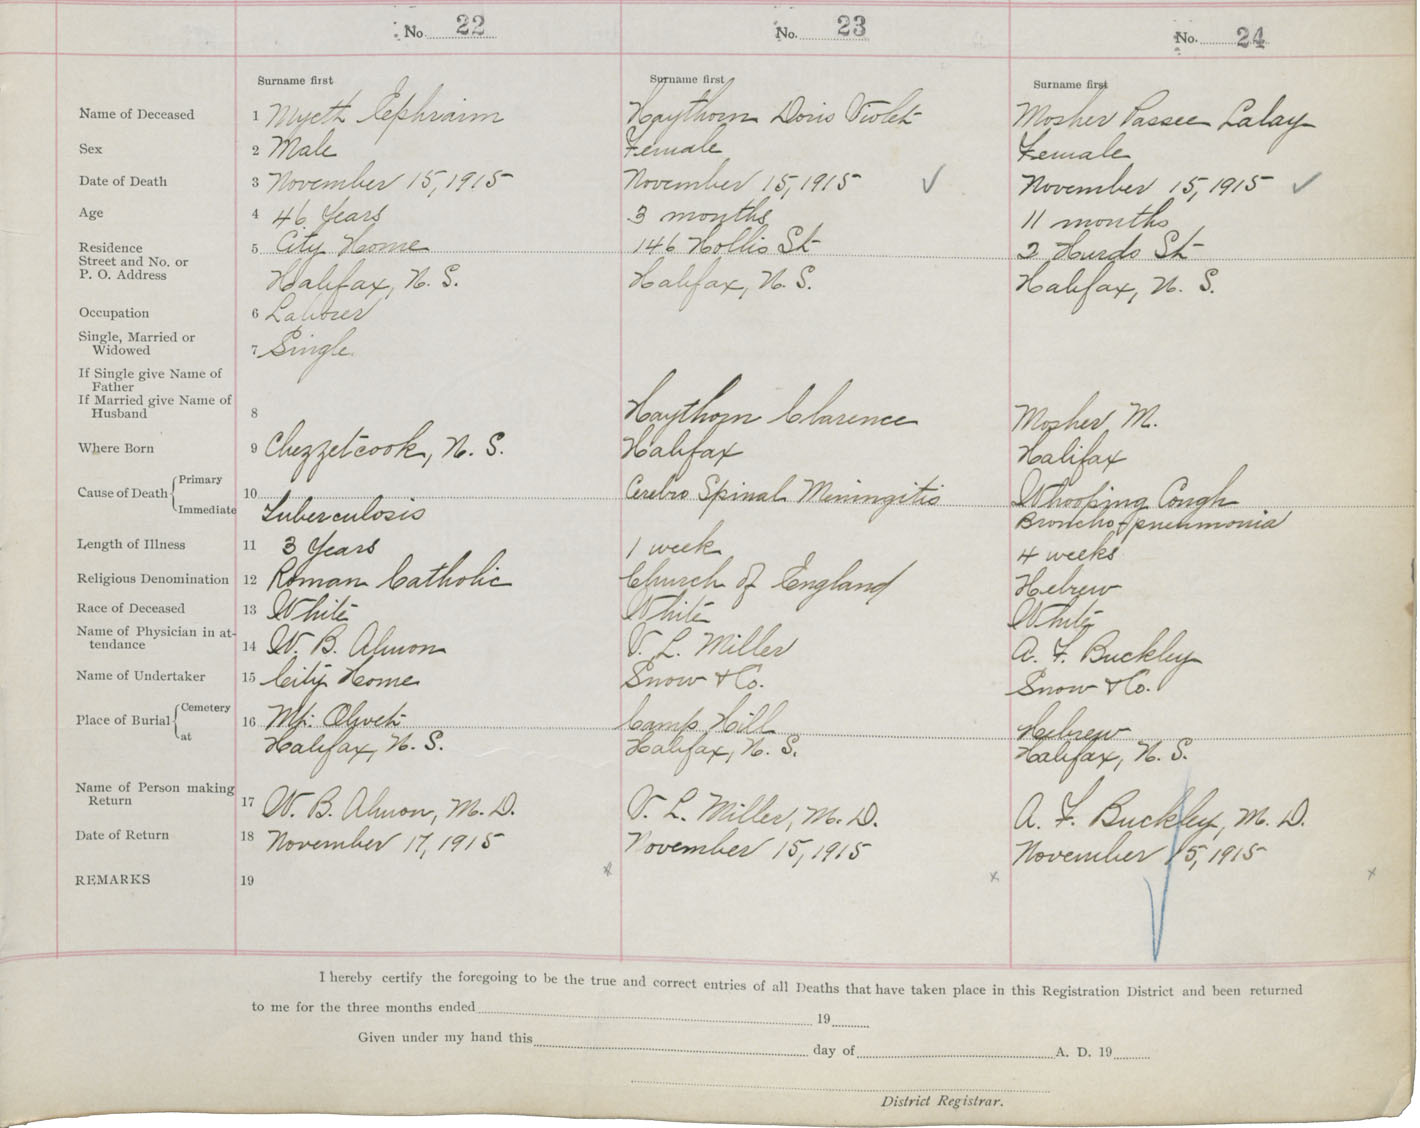 No. 22 No. 23 No. 24
Surname first Surname first Surname first
Name of Deceased 1 Myeth Ephraim Haythorn Doris Violet Mosher Passee Lalay
Sex 2 Male Female Female
Date of Death 3 November 15, 1915 November 15, 1915 ✓ November 15, 1915 ✓
Age 4 46 Years 3 months 11 months
Residence 5 City Home 146 Hollis St 2 Hurds St
Street and No. or
P. O. Address Halifax, N. S. Halifax, N. S. Halifax, N. S.
Occupation 6 Laborer
Single, Married or
Widowed 7 Single
If Single give Name of
Father
If Married give Name of
Husband 8 Haythorn Clarence Mosher M.
Where Born 9 Chezzetcook, N. S. Halifax Halifax
Cause of Death Primary 10 Cerebro Spinal Meningitis Whooping Cough
Immediate Tuberculosis Broncho-pneumonia
Length of Illness 11 3 Years 1 week 4 weeks
Religious Denomination 12 Roman Catholic Church of England Hebrew
Race of Deceased 13 White White White
Name of Physician in at-
tendance 14 W. B. Almon V. L. Miller A. F. Buckley
Name of Undertaker 15 City Home Snow & Co. Snow & Co.
Place of Burial Cemetery 16 Mt. Olivet Camp Hill Hebrew
at Halifax, N. S. Halifax, N. S. Halifax, N. S.
Name of Person making
Return 17 W. B. Almon, M. D. V. L. Miller, M. D. A. F. Buckley, M. D.
Date of Return 18 November 17, 1915 November 15, 1915 November 15, 1915
REMARKS 19 x x x
I hereby certify the foregoing to be the true and correct entries of all Deaths that have taken place in this Registration District and been returned
to me for the three months ended 19
Given under my hand this day of A. D. 19
District Registrar.